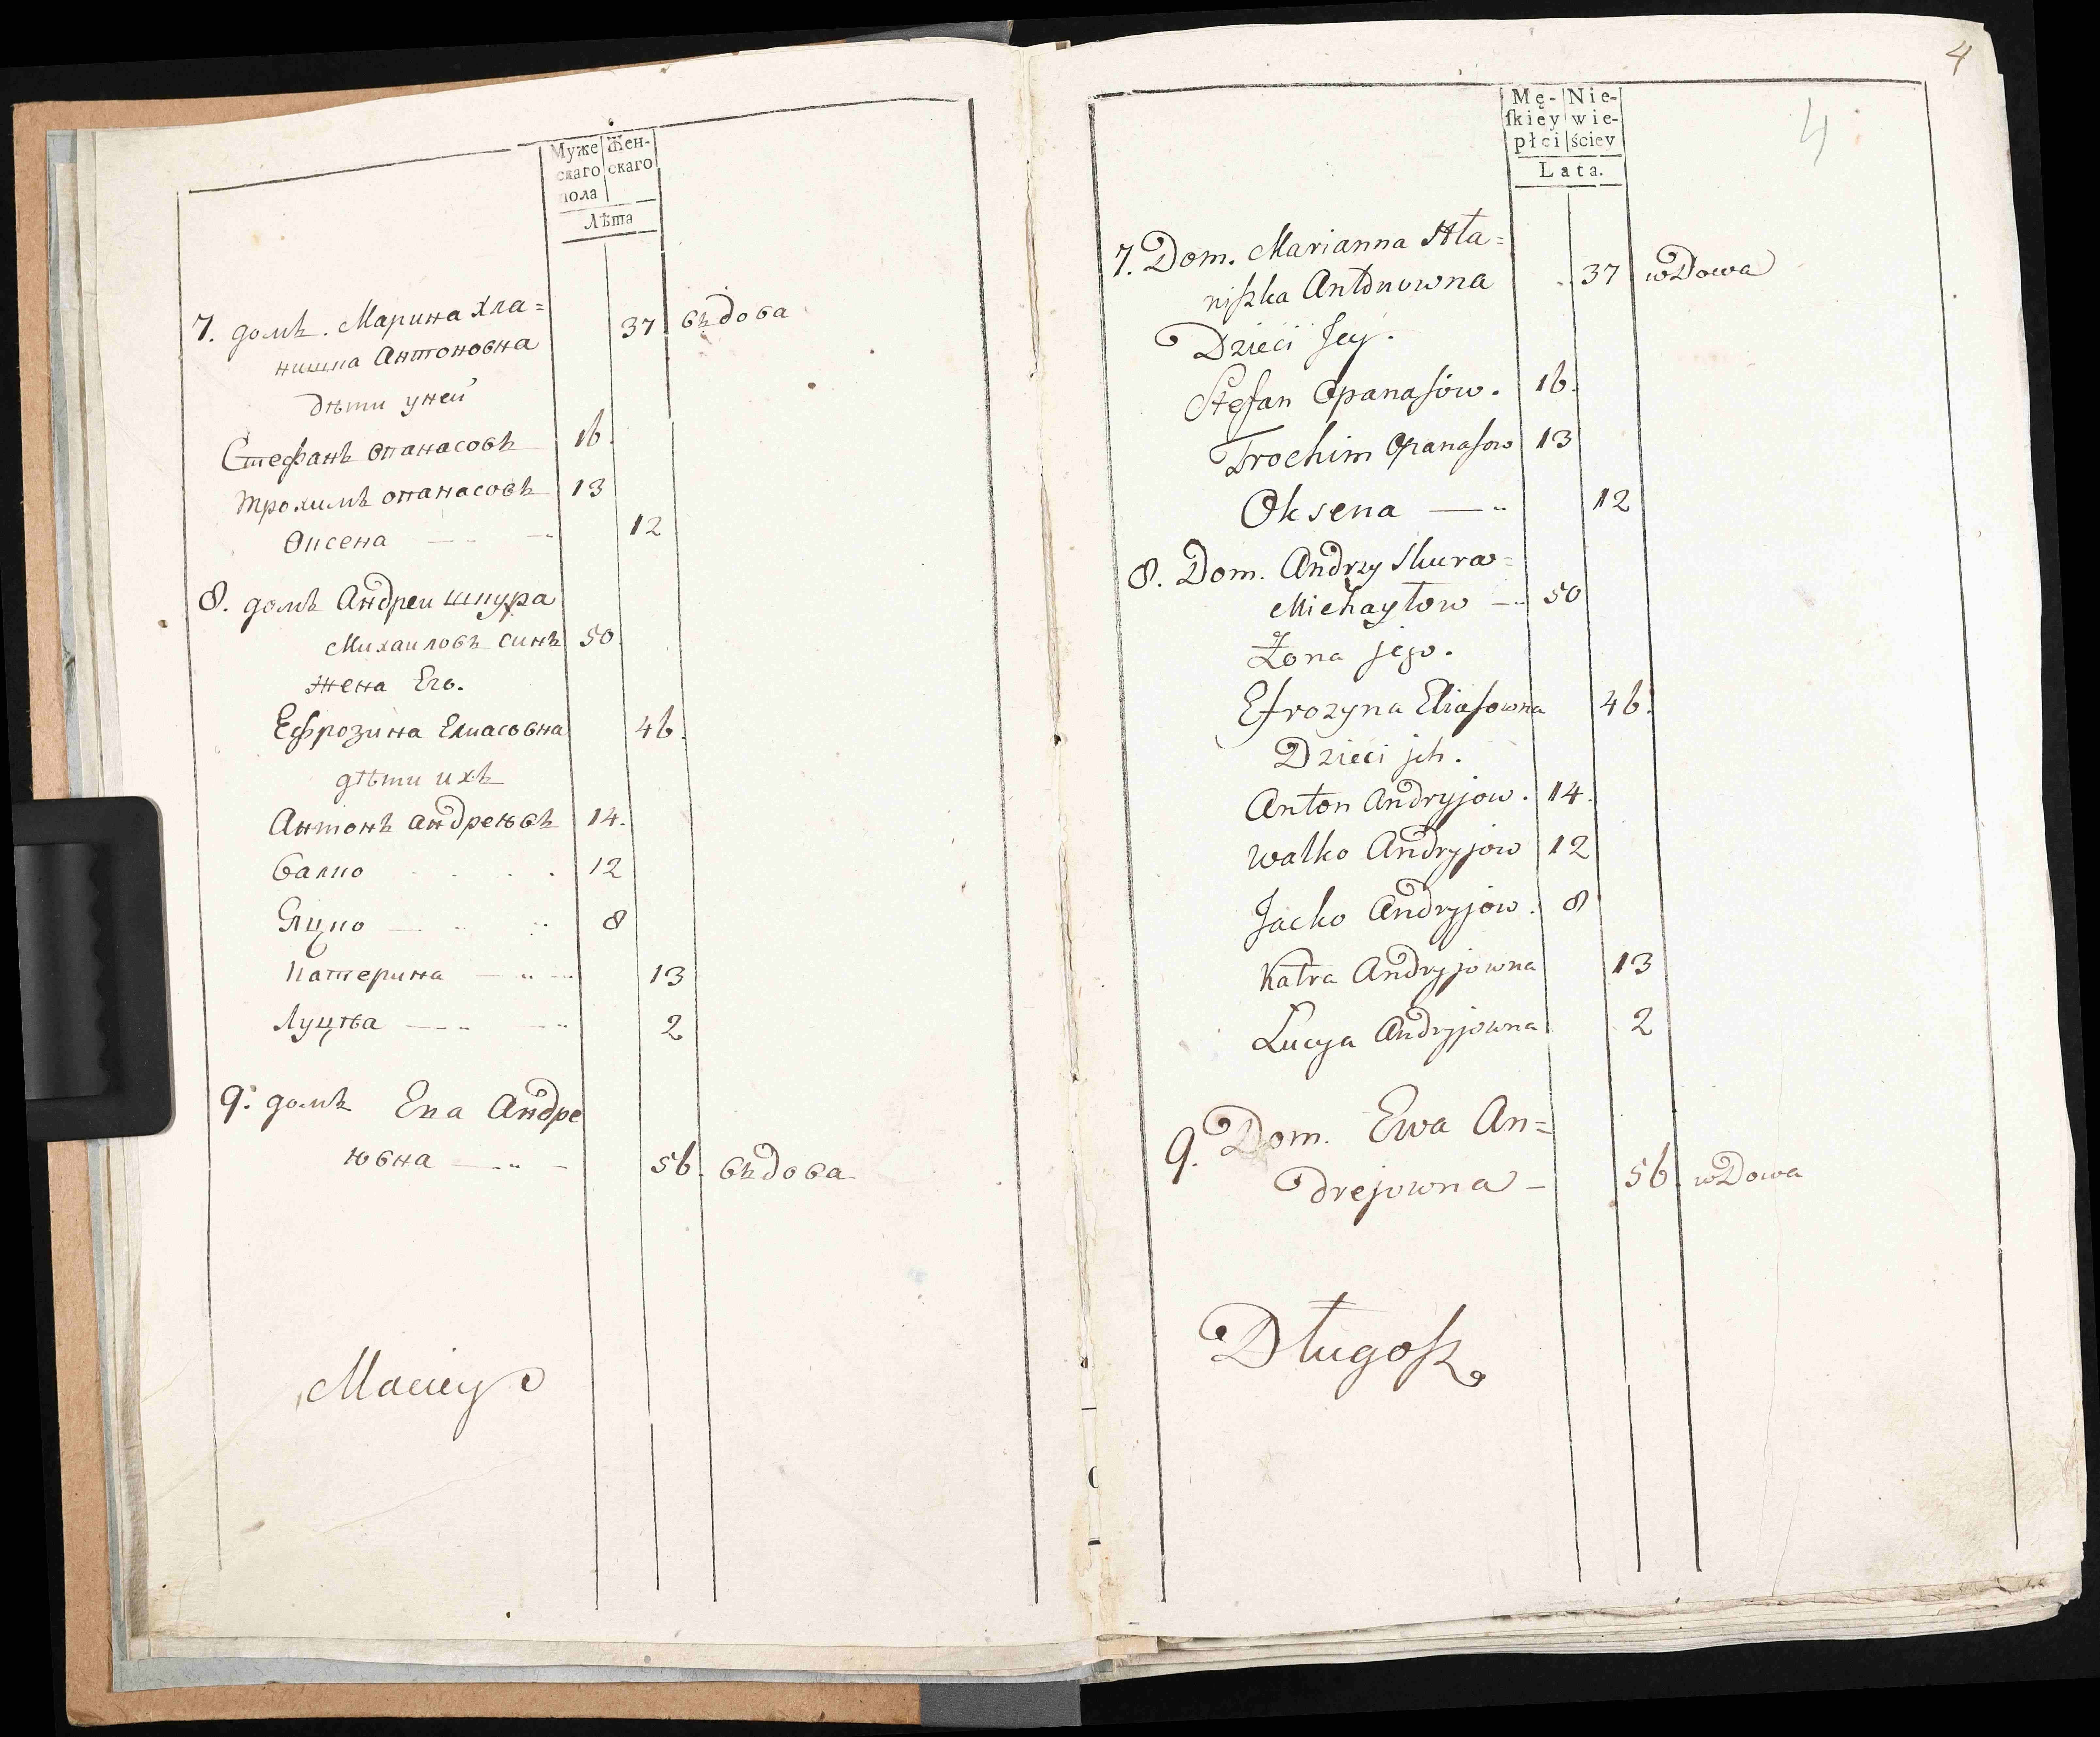 Муже Жен-
скаго скаго
пола
Лѣта
7. домъ. Марина Хла=
нишка Антоновна 37 вѣдова
дѣти уней
Стефанъ опанасовъ 16.
трохимъ опанасовъ 13
Оксена — 12
8. домъ Андреи шкура
Михаиловъ синъ 50.
жена Его.
Ефрозина Елиасовна 46.
дѣти ихъ
Антонъ андреювъ 14.
валко . . . . 12
Яцко — 8
катерина — 13
Луцѣа — 2
9. домъ Ева Андре
ювна — 56. вѣдова
Maciey
4
4
Mę- Nie-
ſkiey wie-
płci ściey
Lata.
7. Dom. Marianna Hła=
niſzka Antonowna .. 37 wdowa
Dzieci Jey.
Stefan Opanaſów. 16.
Trochim Opanaſow 13
Oksena — 12
8. Dom. Andrzy Skura=
Michayłow — 50
Żona jego.
Efrozyna Eliaſowna 46.
Dzieci jch.
Anton Andryjow. 14.
Walko Andryjow 12
Jacko Andryjow. 8
Katra Andryjowna 13
Lucya Andryjowna 2
9. Dom. Ewa An=
drejowna — 56. wdowa
Długoſz